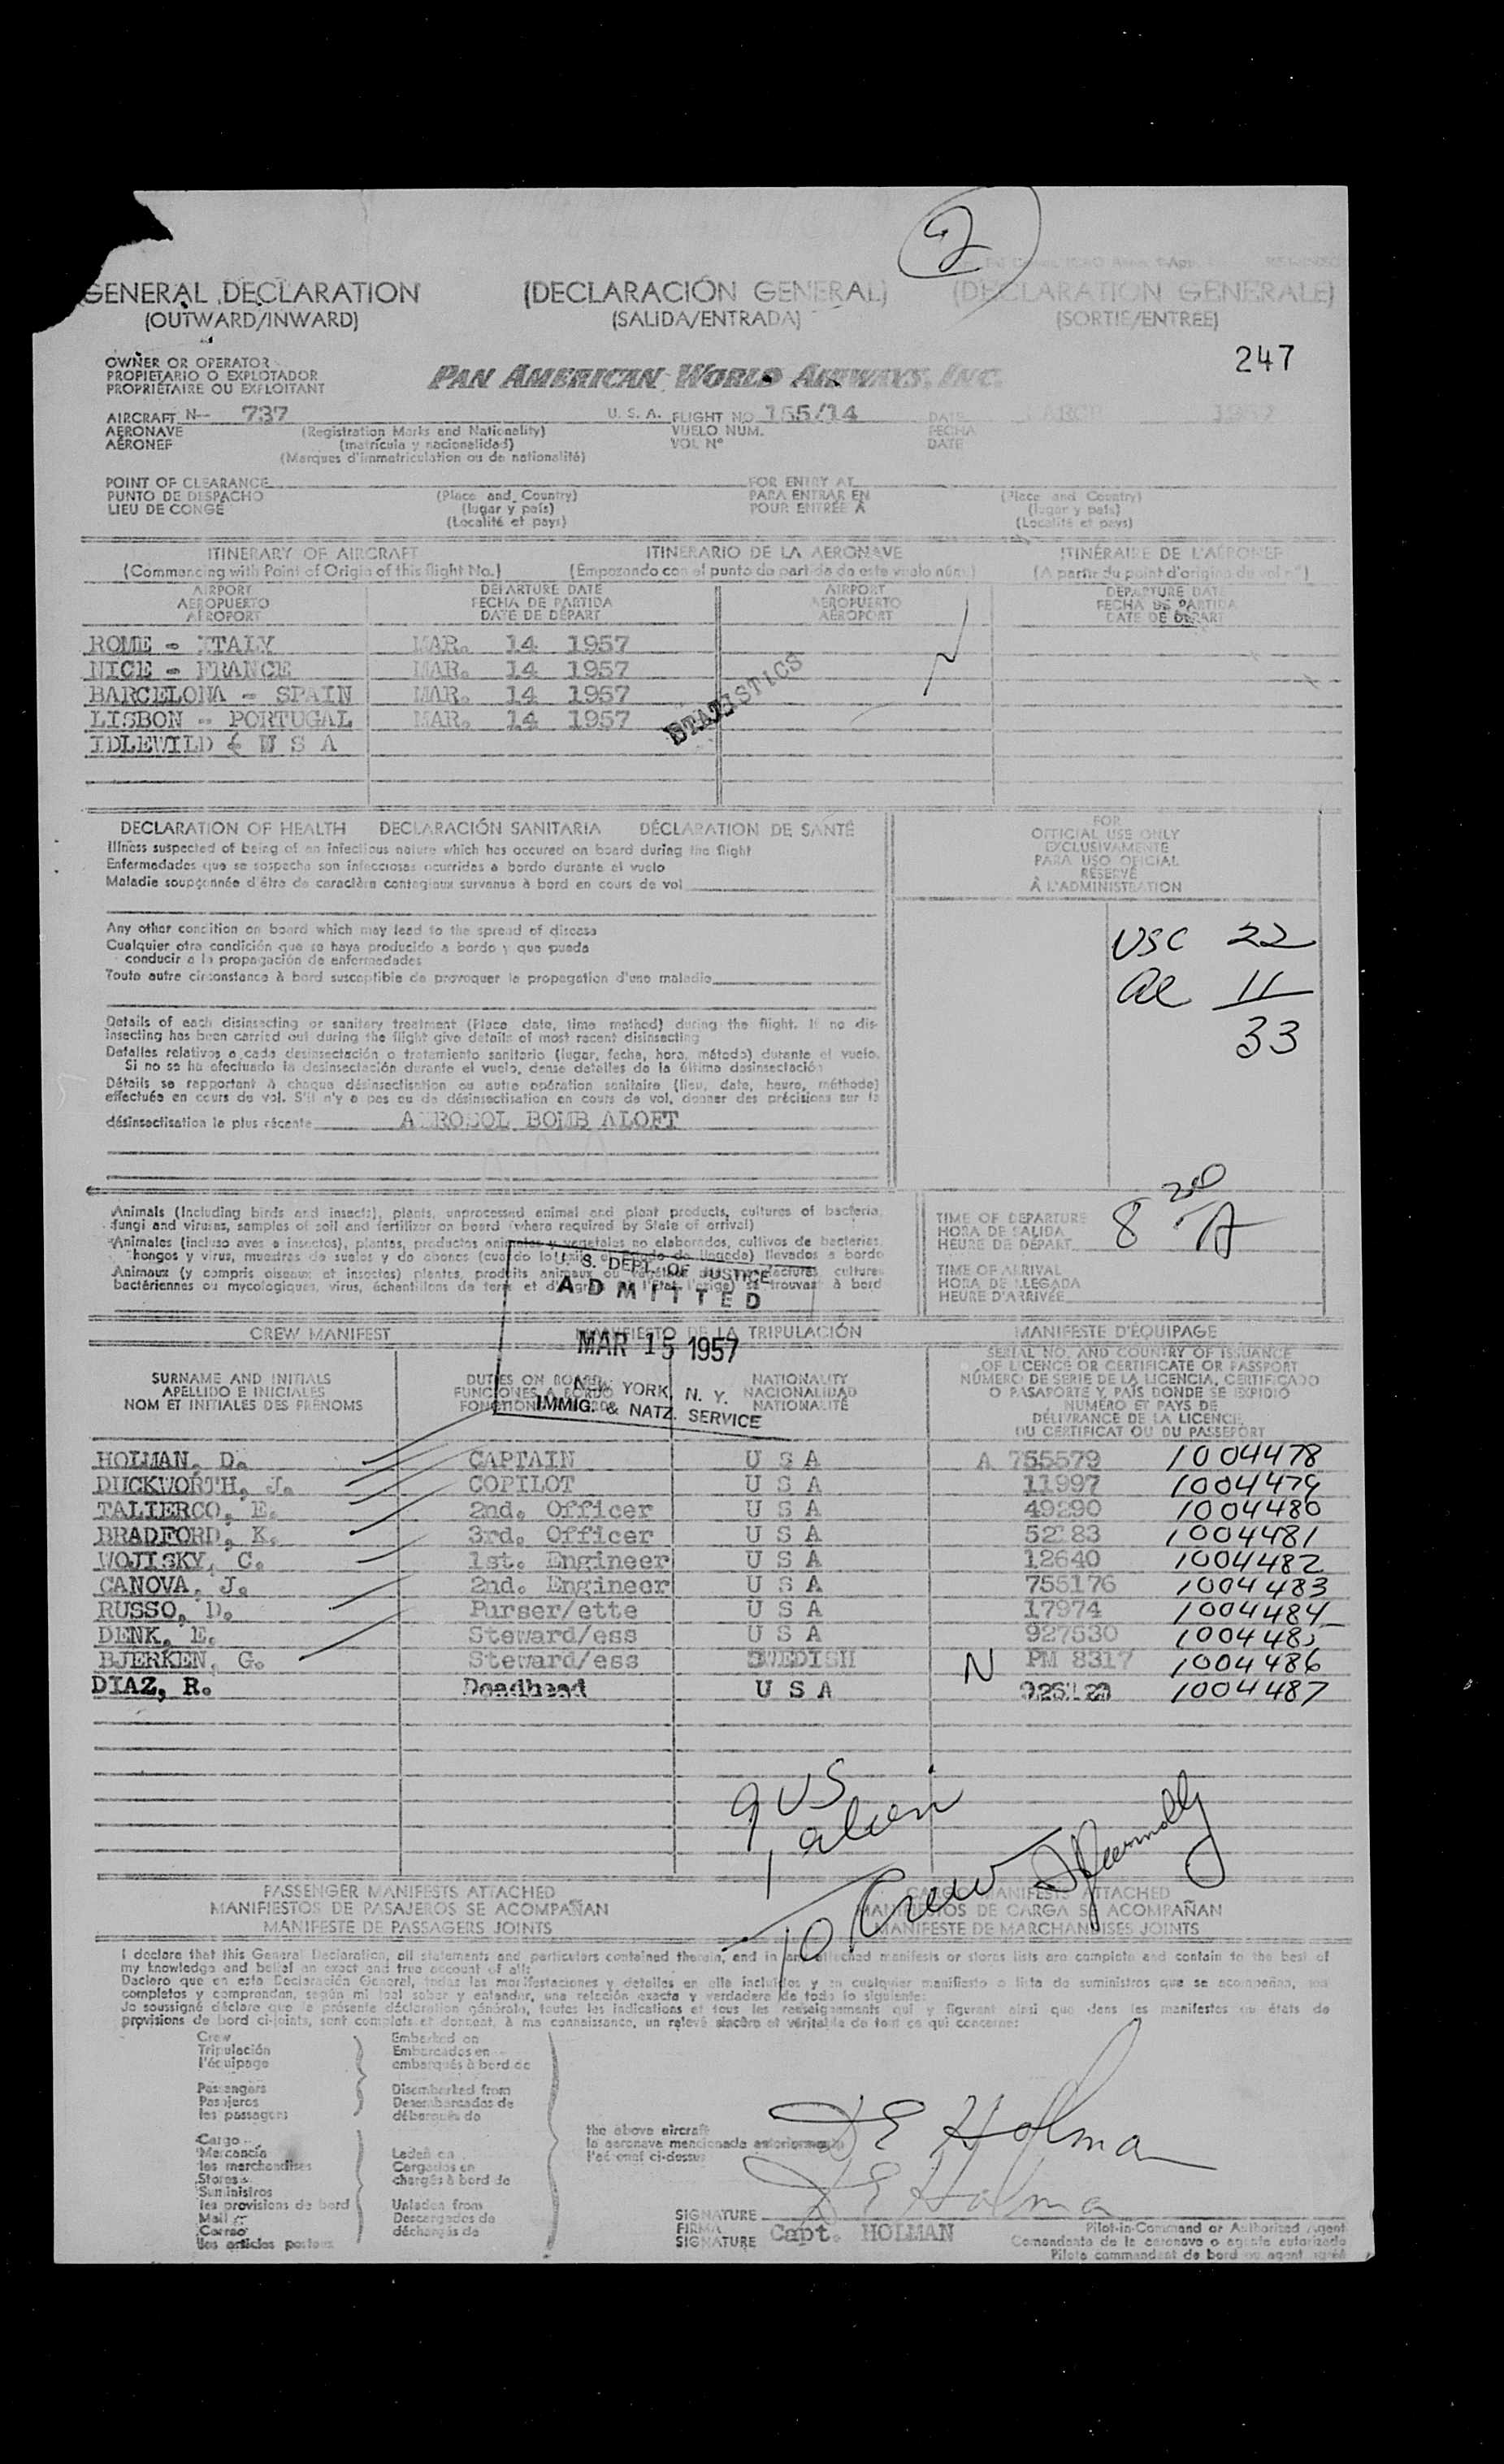 2
GENERAL DECLARATION (DECLARACIÓN GENERAL) (DECLARATION GENERALE)
(OUTWARD/INWARD) (SALIDA/ENTRADA) (SORTIE/ENTREE)
247
OWNER OR OPERATOR
PROPIETARIO O EXPLOTADOR
PROPRIÉTAIRE OU EXPLOITANT
PAN AMERICAN WORLD AIRWAYS, INC.
AIRCRAFT N-- 737 U. S. A. FLIGHT NO 155/14 DATE MARCH 1957
AERONAVE (Registration Marks and Nationality) VUELO NUM. FECHA
AÉRONEF (matrícula y nacionalidad) VOL Nº DATE
(Marques d'immatriculation ou de nationalité)
POINT OF CLEARANCE FOR ENTRY AT
PUNTO DE DESPACHO (Place and Country) PARA ENTRAR EN (Place and Country)
LIEU DE CONGÉ (lugar y país) POUR ENTRÉE A (lugar y país)
(Localité et pays) (Localité et pays)
ITINERARY OF AIRCRAFT ITINERARIO DE LA AERONAVE ITINÉRAIRE DE L'AÉRONEF
(Commencing with Point of Origin of this flight No.) (Empezando con el punto de partida de este vuelo núm.) (A partir du point d'origine du vol nº)
AIRPORT DEPARTURE DATE AIRPORT DEPARTURE DATE
AEROPUERTO FECHA DE PARTIDA AEROPUERTO FECHA DE PARTIDA
AÉROPORT DATE DE DÉPART AÉROPORT DATE DE DÉPART
ROME - ITALY MAR. 14 1957
NICE - FRANCE MAR. 14 1957
BARCELONA - SPAIN MAR. 14 1957
LISBON - PORTUGAL MAR. 14 1957
IDLEWILD U S A
STATISTICS
DECLARATION OF HEALTH DECLARACIÓN SANITARIA DÉCLARATION DE SANTÉ
Illness suspected of being of an infectious nature which has occured on board during the flight
Enfermedades que se sospecha son infecciosas ocurridas a bordo durante el vuelo
Maladie soupçonnée d'être de caractère contagieux survenue à bord en cours de vol
FOR
OFFICIAL USE ONLY
EXCLUSIVAMENTE
PARA USO OFICIAL
RÉSERVÉ
À L'ADMINISTRATION
Any other condition on board which may lead to the spread of disease
Cualquier otra condición que se haya producido a bordo y que pueda
conducir a la propagación de enfermedades
Toute autre circonstance à bord susceptible de provoquer la propagation d'une maladie
USC 22
al 11
33
Details of each disinsecting or sanitary treatment (Place date, time method) during the flight. If no dis-
insecting has been carried out during the flight give details of most recent disinsecting
Detalles relativos a cada desinsectación o tratamiento sanitario (lugar, fecha, hora, método) durante el vuelo.
Si no se ha efectuado la desinsectación durante el vuelo, dense detalles de la última desinsectación
Détails se rapportant à chaque désinsectisation ou autre opération sanitaire (lieu, date, heure, méthode)
effectuée en cours de vol. S'il n'y a pas eu de désinsectisation en cours de vol, donner des précisions sur la
désinsectisation la plus récente AEROSOL BOMB ALOFT
Animals (Including birds and insects), plants, unprocessed animal and plant products, cultures of bacteria,
fungi and viruses, samples of soil and fertilizer on board (where required by State of arrival)
Animales (incluso aves e insectos), plantas, productos animales y vegetales no elaborados, cultivos de bacterias,
hongos y virus, muestras de suelos y de abonos (cuando lo exija el Estado de llegada) llevados a bordo
Animaux (y compris oiseaux et insectes) plantes, produits animaux ou cultures
bactériennes ou mycologiques, virus, échantillons de terre et d'engrais trouvant à bord
TIME OF DEPARTURE
HORA DE SALIDA
HEURE DE DÉPART 8 20 A
TIME OF ARRIVAL
HORA DE LLEGADA
HEURE D'ARRIVÉE
U. S. DEPT. OF JUSTICE
ADMITTED
MAR 15 1957
NEW YORK, N. Y.
IMMIG. & NATZ. SERVICE
CREW MANIFEST MANIFIESTO DE LA TRIPULACIÓN MANIFESTE D'ÉQUIPAGE
SURNAME AND INITIALS
APELLIDO E INICIALES
NOM ET INITIALES DES PRÉNOMS
DUTIES ON BOARD
FUNCIONES A BORDO
NATIONALITY
NACIONALIDAD
NATIONALITÉ
SERIAL NO. AND COUNTRY OF ISSUANCE
OF LICENCE OR CERTIFICATE OR PASSPORT
NÚMERO DE SERIE DE LA LICENCIA, CERTIFICADO
O PASAPORTE Y PAÍS DONDE SE EXPIDIÓ
NUMÉRO ET PAYS DE
DÉLIVRANCE DE LA LICENCE,
DU CERTIFICAT OU DU PASSEPORT
HOLMAN, D. CAPTAIN U S A A 755579 1004478
DUCKWORTH, J. COPILOT U S A 11997 1004479
TALIERCO, E. 2nd. Officer U S A 49290 1004480
BRADFORD, K. 3rd. Officer U S A 52183 1004481
WOJISKY, C. 1st. Engineer U S A 12640 1004482
CANOVA, J. 2nd. Engineer U S A 755176 1004483
RUSSO, D. Purser/ette U S A 17974 1004484
DENK, E. Steward/ess U S A 927530 1004485
BJERKEN, G. Steward/ess SWEDISH N PM 8317 1004486
DIAZ, R. Deadhead U S A 1004487
9 US
1 alien
10 Crew
PASSENGER MANIFESTS ATTACHED CARGO MANIFESTS ATTACHED
MANIFIESTOS DE PASAJEROS SE ACOMPAÑAN MANIFIESTOS DE CARGA SE ACOMPAÑAN
MANIFESTE DE PASSAGERS JOINTS MANIFESTE DE MARCHANDISES JOINTS
I declare that this General Declaration, all statements and particulars contained therein, and in any attached manifests or stores lists are complete and contain to the best of
my knowledge and belief an exact and true account of all:
Declaro que en esta Declaración General, todas las manifestaciones y detalles en ella incluidos y en cualquier manifiesto o lista de suministros que se acompañan, son
completos y comprenden, según mi leal saber y entender, una relación exacta y verdadera de todo lo siguiente:
Je soussigné déclare que la présente déclaration générale, toutes les indications et tous les renseignements qui y figurent ainsi que dans les manifestes ou états de
provisions de bord ci-joints, sont complets et donnent, à ma connaissance, un relevé sincère et véritable de tout ce qui concerne:
Crew
Tripulación
l'équipage
Passengers
Pasajeros
les passagers
Cargo
Mercancía
les marchandises
Stores
Suministros
les provisions de bord
Mail
Correo
les articles postaux
Embarked on
Embarcados en
embarqués à bord de
Disembarked from
Desembarcados de
débarqués de
Laden on
Cargados en
chargés à bord de
Unladen from
Descargados de
déchargés de
the above aircraft
la aeronave mencionada anteriormente
l'aéronef ci-dessus
D E Holman
D E Holman
SIGNATURE
FIRMA
SIGNATURE Capt. HOLMAN
Pilot-in-Command or Authorized Agent
Comandante de la aeronave o agente autorizado
Pilote commandant de bord ou agent agréé